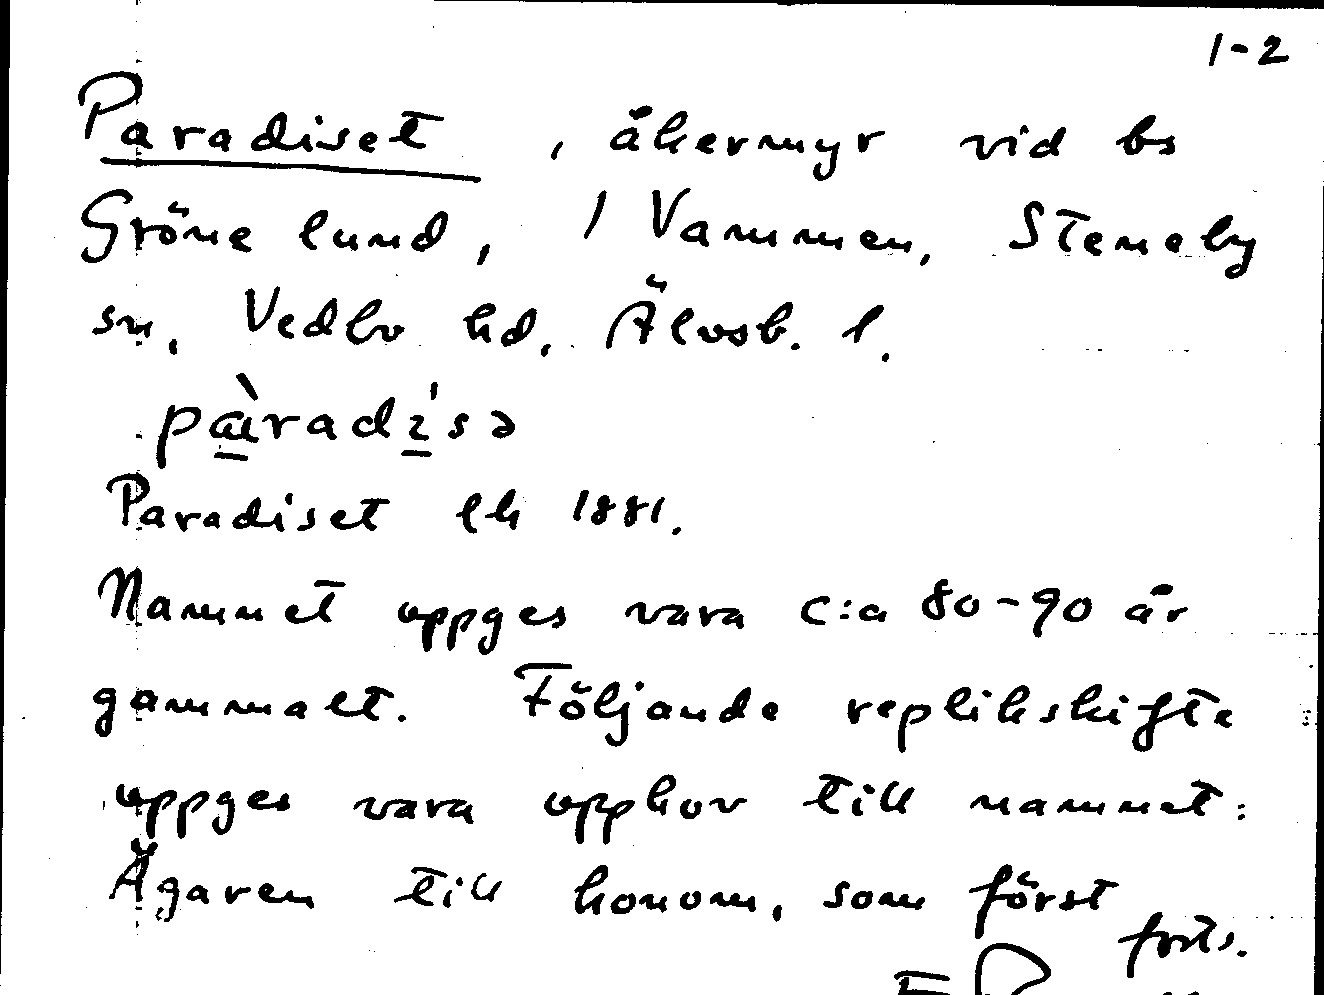 1-2
Paradiset, åkermyr vid bs
Gröne lund, / Vammen, Steneby
sn, Vedbo hd, Älvsb. l.
pàradi̍sə
Paradiset lk 1881.
Namnet uppges vara c:a 80-90 år
gammalt. Följande replikskifte
uppges vara upphov till namnet:
Ägaren till honom, som först
forts.